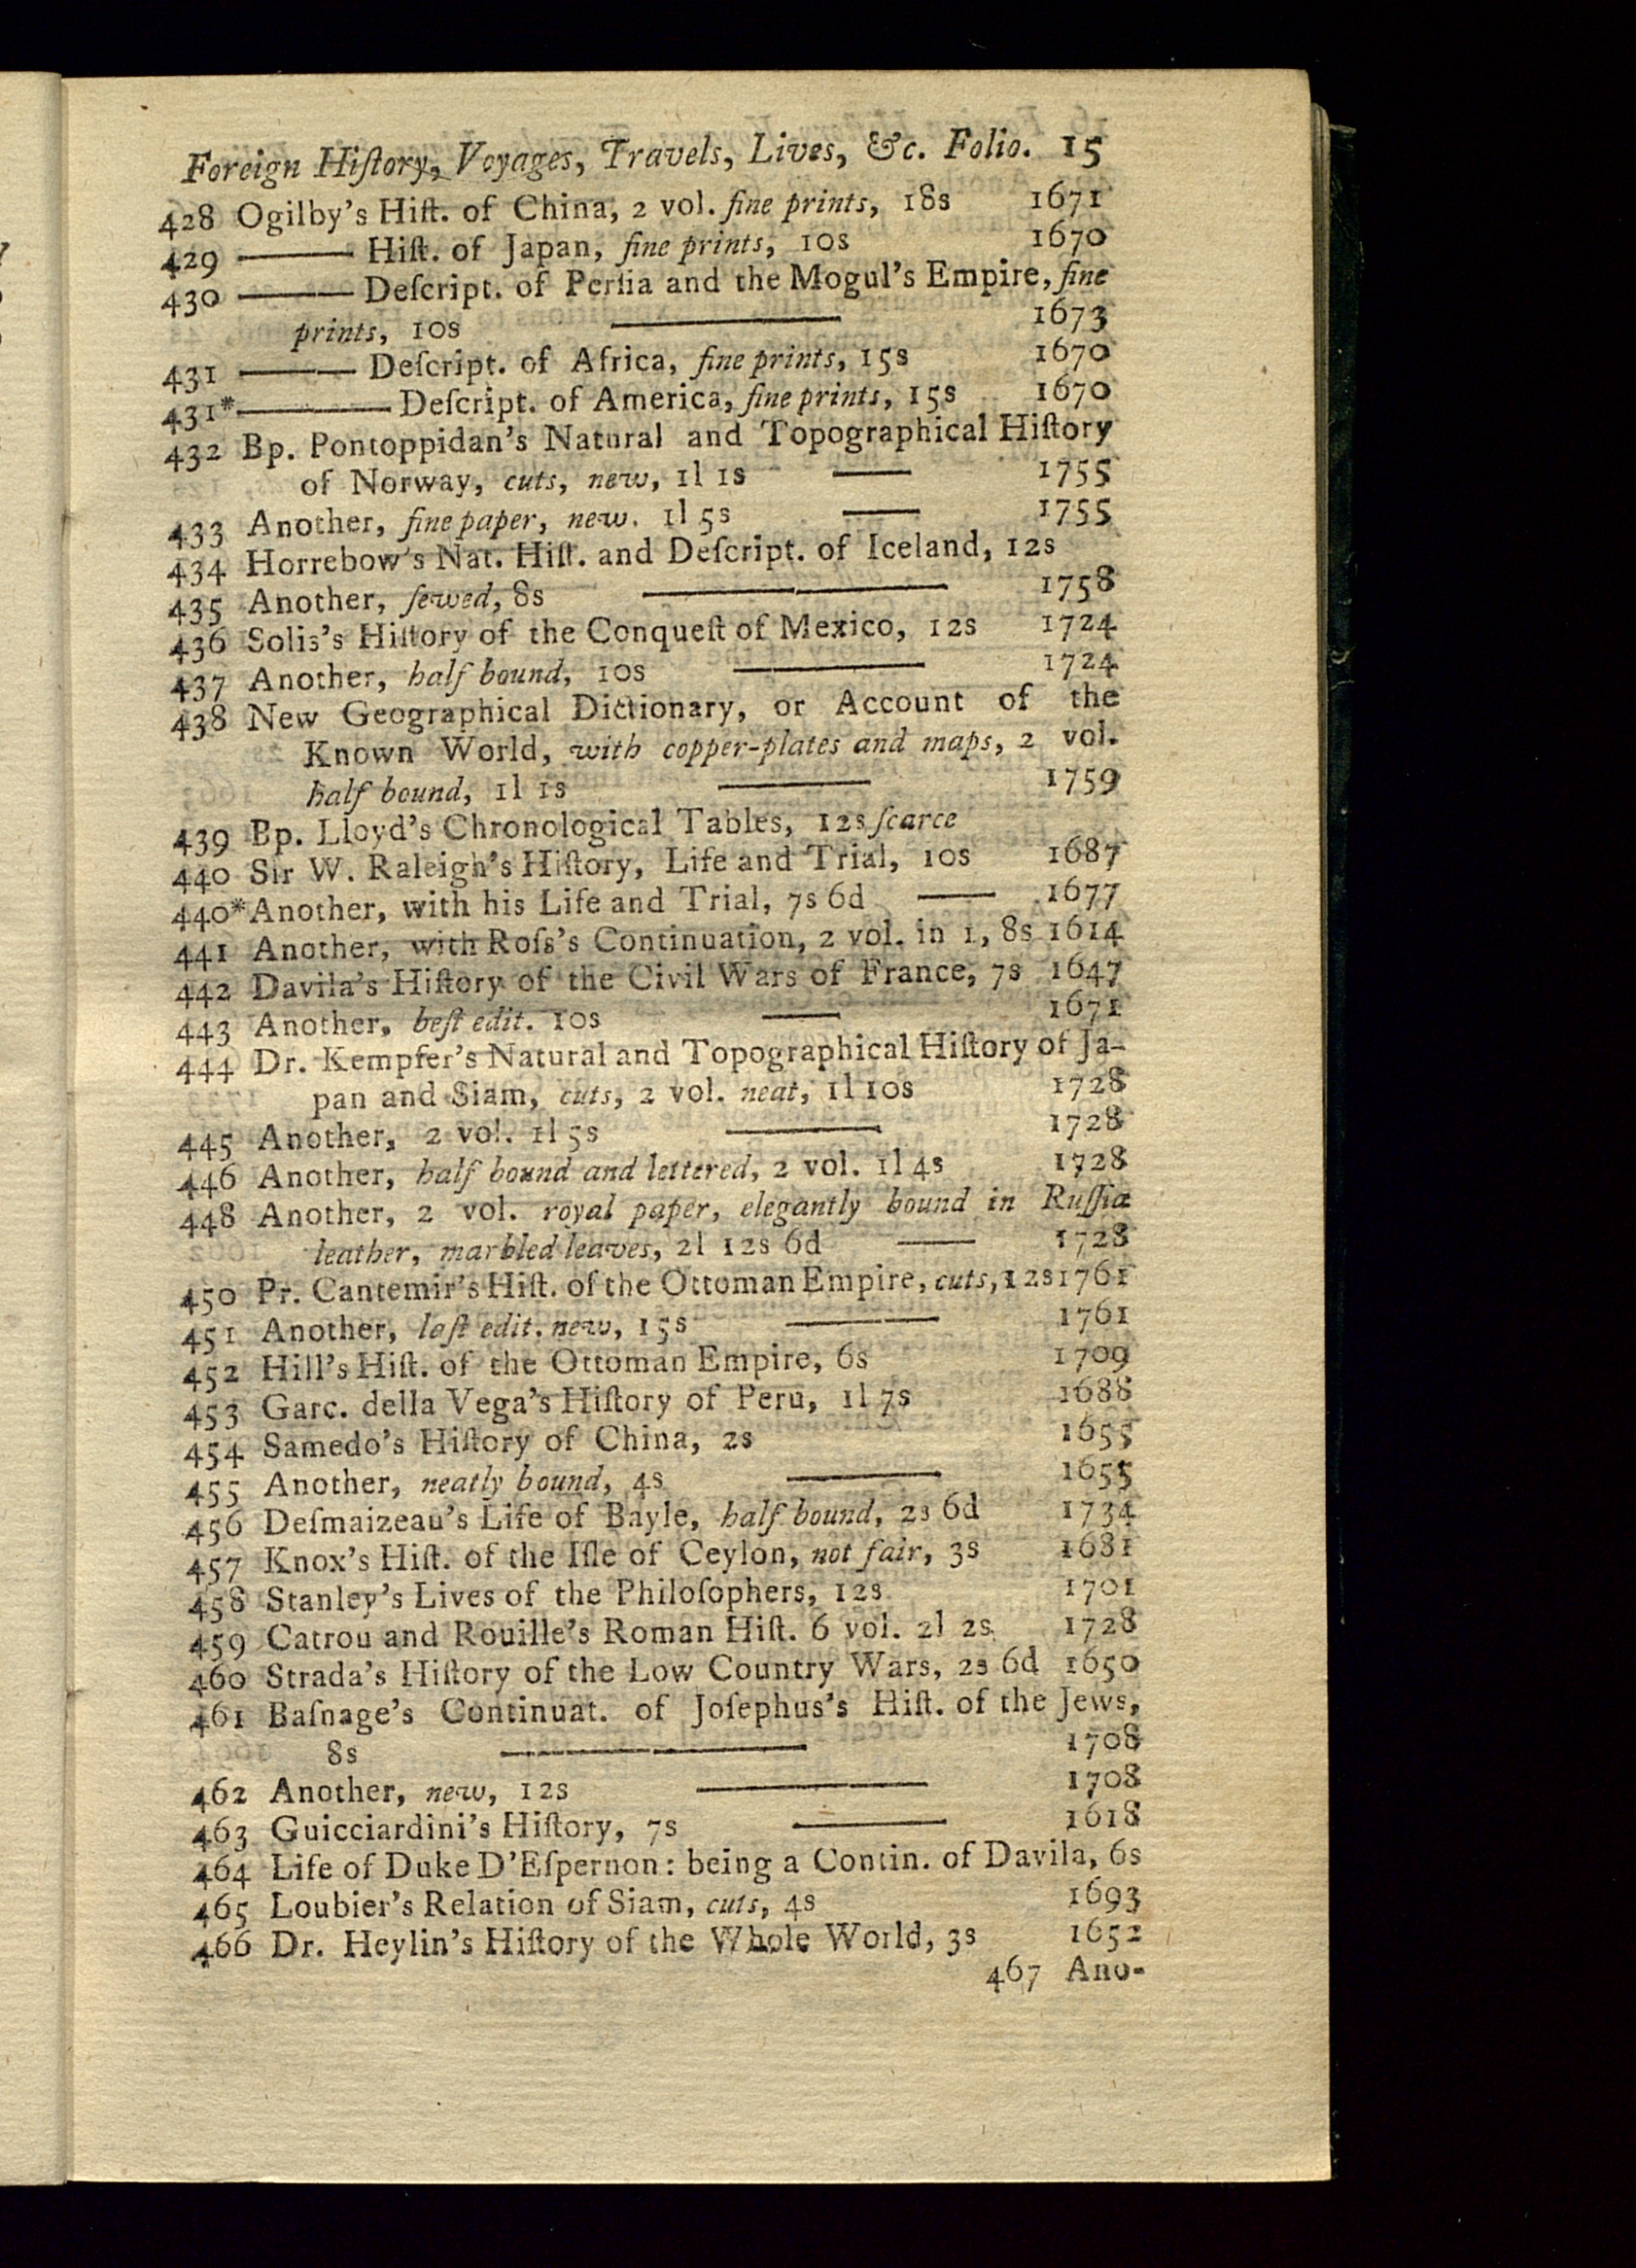 Foreign Hiſtory, Voyages, Travels, Lives, &c. Folio. 15
428 Ogilby's Hiſt. of China, 2 vol. fine prints, 18s 1671
429 ——— Hiſt. of Japan, fine prints, 10s 1670
430 ——— Deſcript. of Perſia and the Mogul's Empire, fine
prints, 10s ——— 1673
431 ——— Deſcript. of Africa, fine prints, 15s 1670
431* ——— Deſcript. of America, fine prints, 15s 1670
432 Bp. Pontoppidan's Natural and Topographical Hiſtory
of Norway, cuts, new, 1l 1s —— 1755
433 Another, fine paper, new. 1l 5s —— 1755
434 Horrebow's Nat. Hiſt. and Deſcript. of Iceland, 12s
435 Another, ſewed, 8s ——— 1758
436 Solis's Hiſtory of the Conqueſt of Mexico, 12s 1724
437 Another, half bound, 10s ——— 1724
438 New Geographical Dictionary, or Account of the
Known World, with copper-plates and maps, 2 vol.
half bound, 1l 1s ——— 1759
439 Bp. Lloyd's Chronological Tables, 12s ſcarce
440 Sir W. Raleigh's Hiſtory, Life and Trial, 10s 1687
440* Another, with his Life and Trial, 7s 6d —— 1677
441 Another, with Roſs's Continuation, 2 vol. in 1, 8s 1614
442 Davila's Hiſtory of the Civil Wars of France, 7s 1647
443 Another, beſt edit. 10s —— 1671
444 Dr. Kempfer's Natural and Topographical Hiſtory of Ja-
pan and Siam, cuts, 2 vol. neat, 1l 10s 1728
445 Another, 2 vol. 1l 5s ——— 1728
446 Another, half bound and lettered, 2 vol. 1l 4s 1728
448 Another, 2 vol. royal paper, elegantly bound in Ruſſia
leather, marbled leaves, 2l 12s 6d —— 1728
450 Pr. Cantemir's Hiſt. of the Ottoman Empire, cuts, 12s 1761
451 Another, laſt edit. new, 15s ——— 1761
452 Hill's Hiſt. of the Ottoman Empire, 6s 1709
453 Garc. della Vega's Hiſtory of Peru, 1l 7s 1688
454 Samedo's Hiſtory of China, 2s 1655
455 Another, neatly bound, 4s ——— 1655
456 Deſmaizeau's Life of Bayle, half bound, 2s 6d 1734
457 Knox's Hiſt. of the Iſle of Ceylon, not fair, 3s 1681
458 Stanley's Lives of the Philoſophers, 12s 1701
459 Catrou and Rouille's Roman Hiſt. 6 vol. 2l 2s 1728
460 Strada's Hiſtory of the Low Country Wars, 2s 6d 1650
461 Baſnage's Continuat. of Joſephus's Hiſt. of the Jews,
8s ——— 1708
462 Another, new, 12s ——— 1708
463 Guicciardini's Hiſtory, 7s ——— 1618
464 Life of Duke D'Eſpernon: being a Contin. of Davila, 6s
465 Loubier's Relation of Siam, cuts, 4s 1693
466 Dr. Heylin's Hiſtory of the Whole World, 3s 1652
467 Ano-